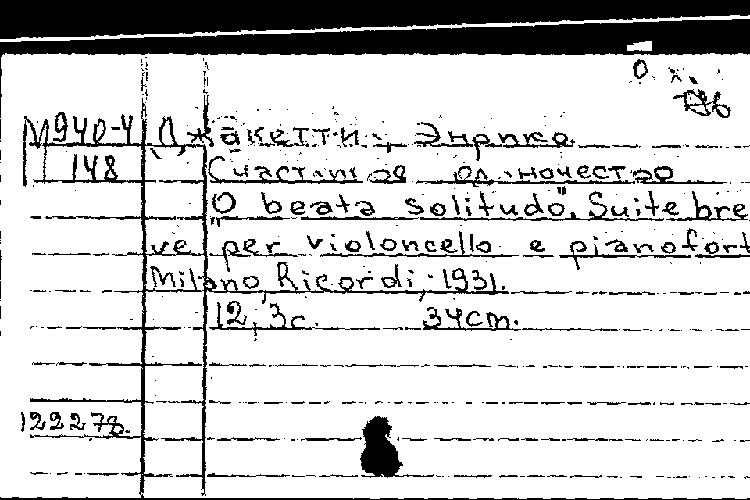 О. х.
М940-4 Джакетти, Энрико.
148 Счастливое одиночество
"O beata solitudo". Suite bre
ve per violoncello e pianofort
Milano, Ricordi, 1931.
12, 3с. 34cm.
122278.